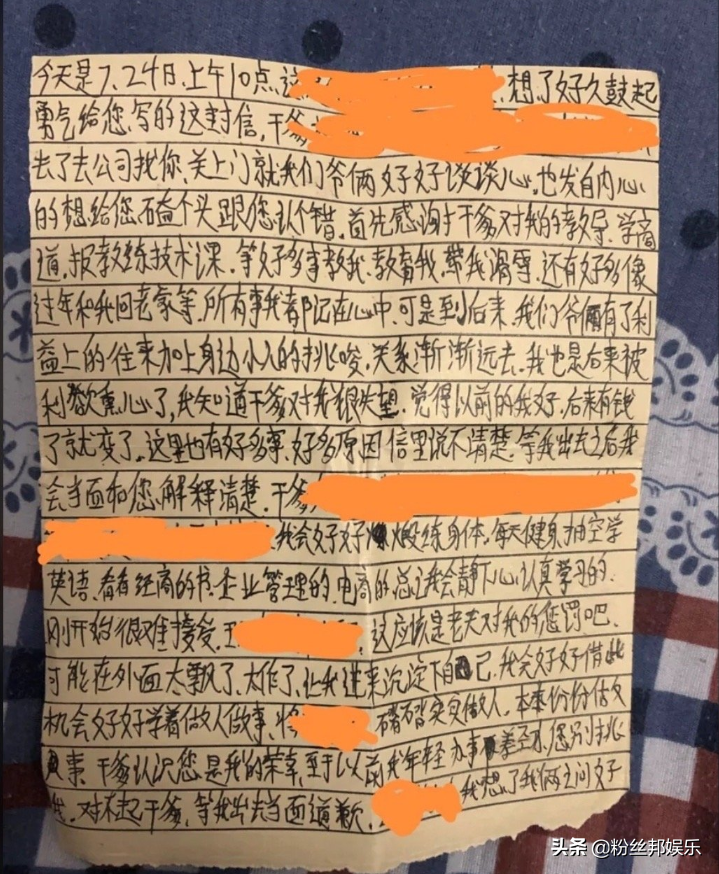 今天是7.24日.上午10点.这 想了好久鼓起
勇气给您.写的这封信,干爹
去了去公司找你.关上门就我们爷俩好好谈谈心.也发自内心
的想给您磕个头跟您认个错.首先感谢干爹对我的教导.学商
道.报教练技术课.等好多事教我.教育我.带我滑雪.还有好多像
过年和我回老家等.所有事我都记在心中.可是到后来.我们爷俩有了利
益上的往来加上身边小人的挑唆.关系渐渐远去.我也是后来被
利欲熏心了,我知道干爹对我狠失望.觉得以前的我好.后来有钱
了就变了.这里也有好多事.好多原因信里说不清楚.等我出去之后我
会当面和您.解释清楚.干爹
我会好好 煅练身体.每天健身.抽空学
英语.看看经商的书.企业管理的.电商的总之我会静下心.认真学习的.
刚开始很难接受. 这应该是老天对我的惩罚吧.
可能在外面太飘了.太作了.让我进来沉淀下自己.我会好好借此
机会好好学着做人做事. 踏踏实实做人.本本份份
事.干爹认识您是我的荣幸.至于以前我年轻办事 您别挑
我.对不起干爹.等我出去当面道歉. 我想了我俩之间好
头条 @粉丝邦娱乐